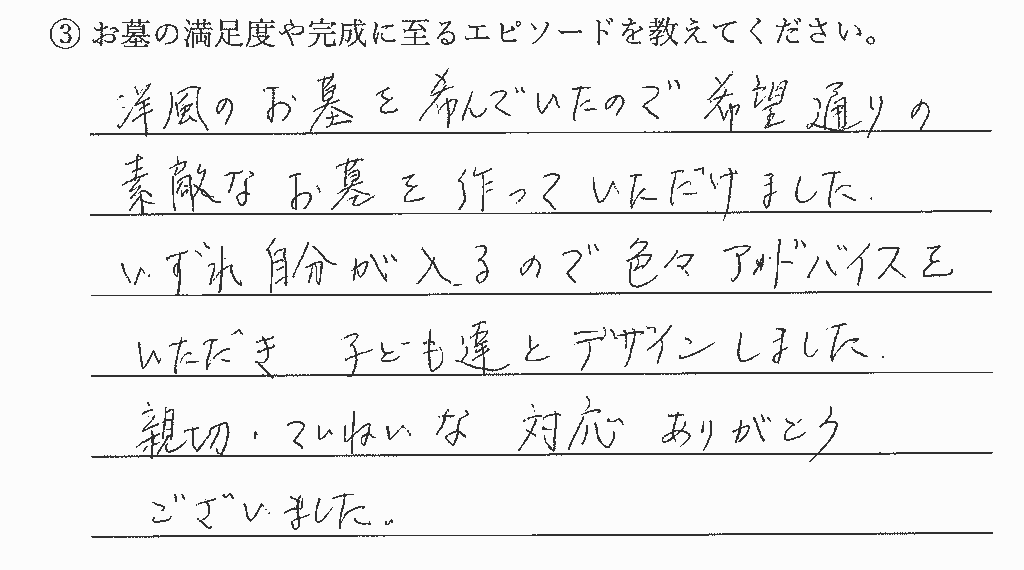 ③ お墓の満足度や完成に至るエピソードを教えてください。
洋風のお墓を希んでいたので希望通りの
素敵なお墓を作っていただけました.
いずれ自分が入るので色々アドバイスを
いただき 子ども達とデザインしました.
親切・ていねいな 対応 ありがとう
ございました。